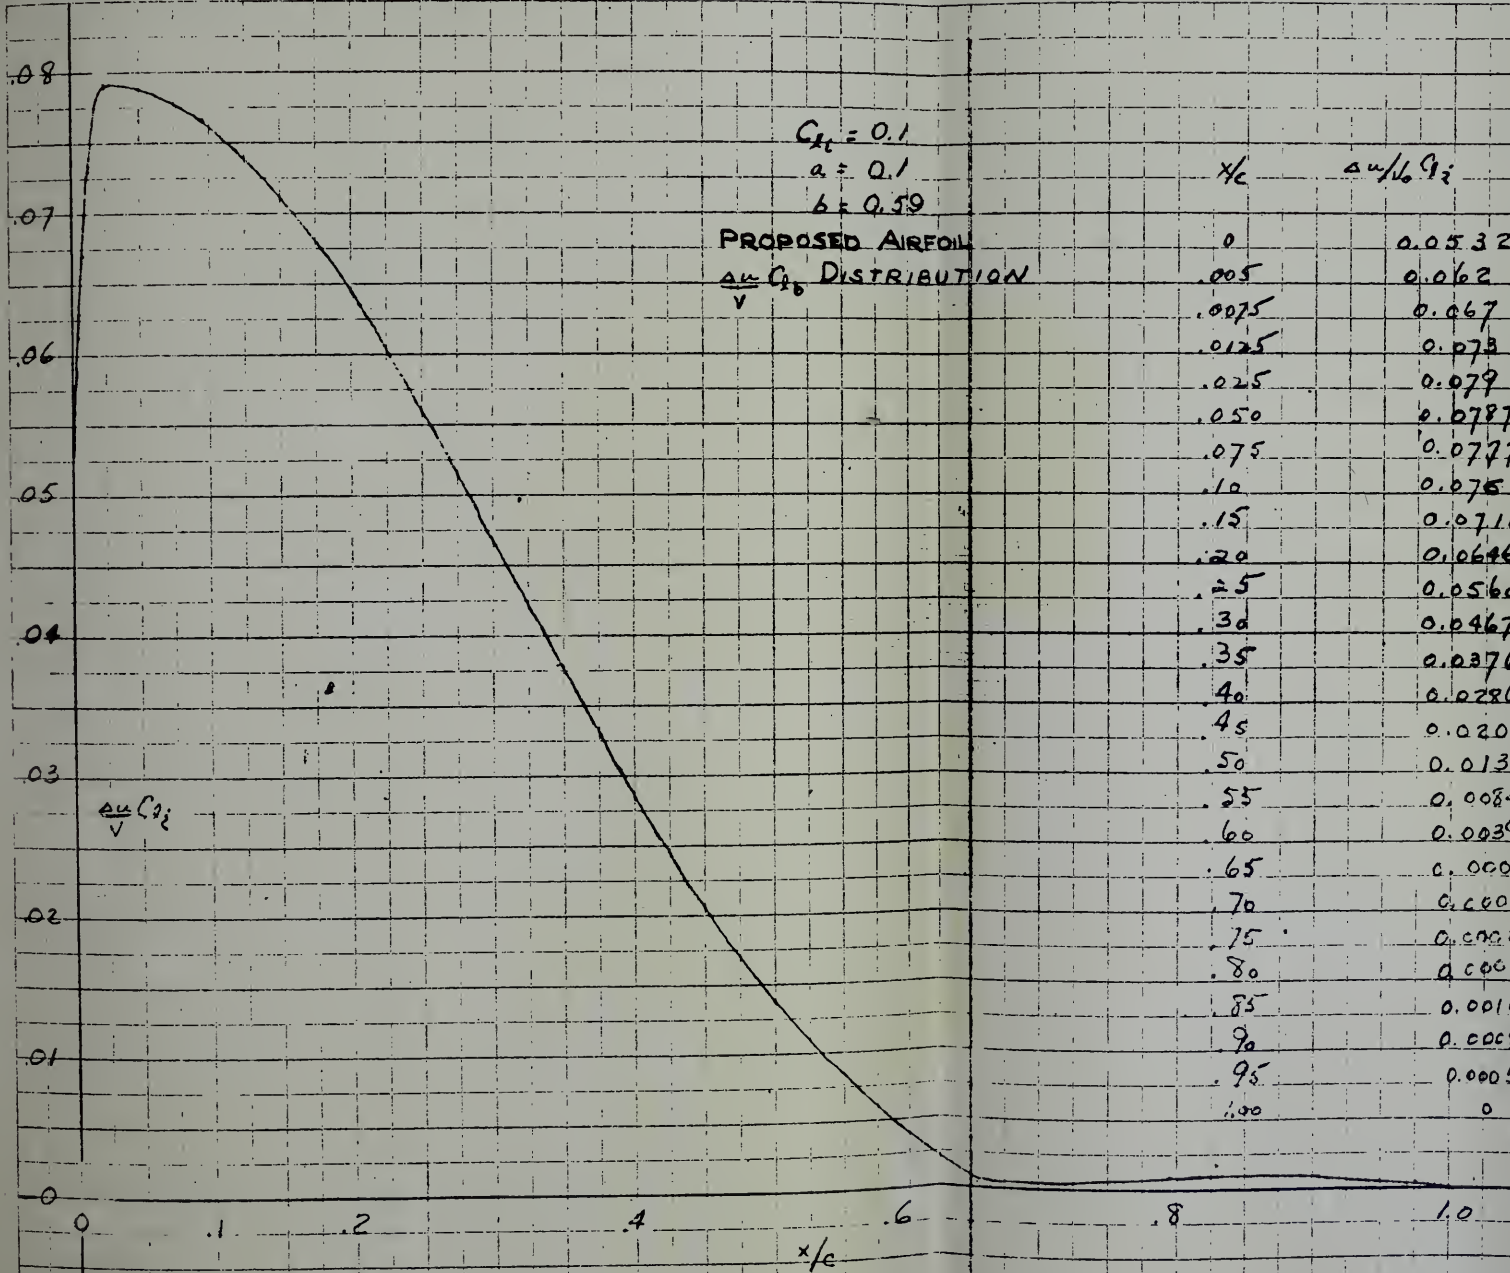 .08
.07
.06
.05
.04
.03
.02
.01
0
Δu/V Cli
Cli = 0.1
a = 0.1
b = 0.59
PROPOSED AIRFOIL
Δu/V Clb DISTRIBUTION
x/c Δu/V0 Cli
0 0.0532
.005 0.062
.0075 0.067
.0125 0.073
.025 0.079
.050 0.0787
.075 0.0777
.10 0.076
.15 0.071
.20 0.0646
.25 0.0560
.30 0.0467
.35 0.0376
.40 0.0286
.45 0.020
.50 0.013
.55 0.008
.60 0.003
.65 0.000
.70 0.000
.75 0.000
.80 0.000
.85 0.001
.90 0.000
.95 0.0005
1.00 0
0 .1 .2 .4 .6 .8 1.0
x/c